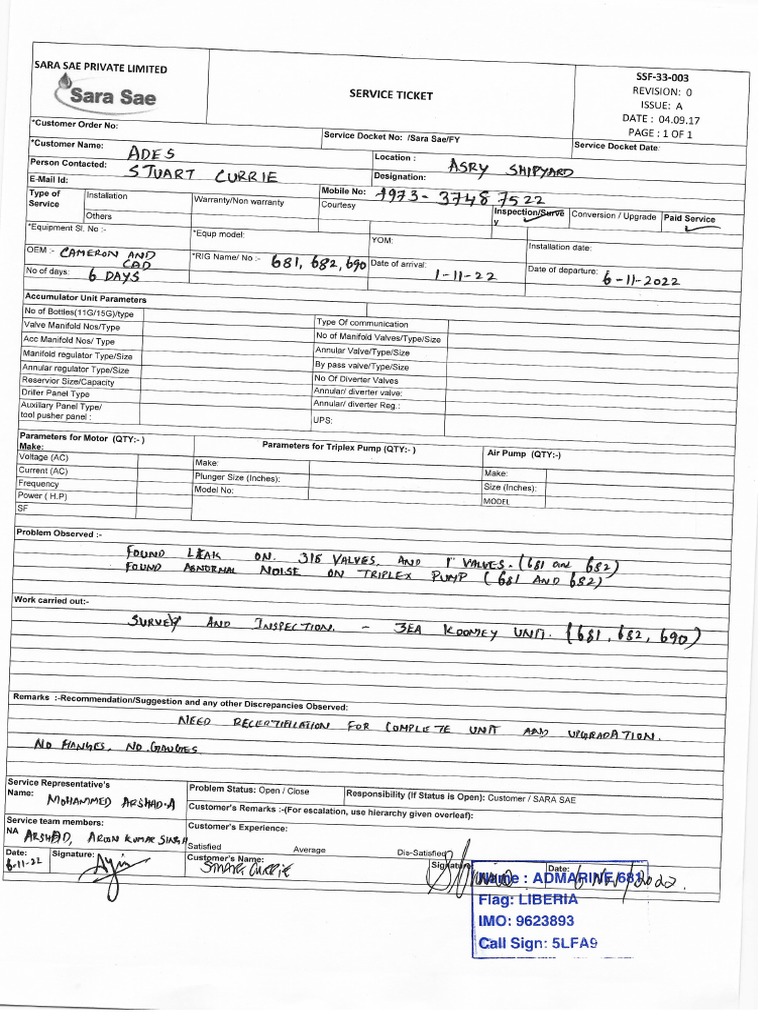 SARA SAE PRIVATE LIMITED
Sara Sae
SERVICE TICKET
SSF-33-003
REVISION: 0
ISSUE: A
DATE : 04.09.17
PAGE : 1 OF 1
*Customer Order No:
Service Docket No: /Sara Sae/FY
Service Docket Date:
*Customer Name: ADES
Location : ASRY SHIPYARD
Person Contacted: STUART CURRIE
Designation:
E-Mail Id:
Mobile No: +973-3748 7522
Type of Service
Installation
Warranty/Non warranty
Courtesy
Inspection/Survey
Conversion / Upgrade
Paid Service
Others
*Equipment Sl. No :-
*Equp model:
YOM:
Installation date:
OEM :- CAMERON AND CAD
*RIG Name/ No :- 681, 682, 690
Date of arrival: 1-11-22
Date of departure: 6-11-2022
No of days: 6 DAYS
Accumulator Unit Parameters
No of Bottles(11G/15G)/type
Type Of communication
Valve Manifold Nos/Type
No of Manifold Valves/Type/Size
Acc Manifold Nos/ Type
Annular Valve/Type/Size
Manifold regulator Type/Size
By pass valve/Type/Size
Annular regulator Type/Size
No Of Diverter Valves
Reservior Size/Capacity
Annular/ diverter valve:
Driller Panel Type
Annular/ diverter Reg.:
Auxillary Panel Type/
tool pusher panel :
UPS:
Parameters for Motor (QTY:- )
Parameters for Triplex Pump (QTY:- )
Air Pump (QTY:-)
Make:
Voltage (AC)
Make:
Make:
Current (AC)
Plunger Size (Inches):
Size (Inches):
Frequency
Model No:
MODEL
Power ( H.P)
SF
Problem Observed :-
FOUND LEAK ON 316 VALVES AND 1" VALVES. (681 and 682)
FOUND ABNORMAL NOISE ON TRIPLEX PUMP (681 AND 682)
Work carried out:-
SURVEY AND INSPECTION - 3EA KOOMEY UNIT. (681, 682, 690)
Remarks :-Recommendation/Suggestion and any other Discrepancies Observed:
NEED RECERTIFICATION FOR COMPLETE UNIT AND UPGRADATION.
NO FLANGES, NO GAUGES
Service Representative's
Name: MOHAMMED ARSHAD.A
Problem Status: Open / Close
Responsibility (If Status is Open): Customer / SARA SAE
Customer's Remarks :-(For escalation, use hierarchy given overleaf):
Service team members:
NA ARSHAD, ARUN KUMAR SINGH
Customer's Experience:
Satisfied
Average
Dis-Satisfied
Date: 6-11-22
Signature:
Customer's Name: STUART CURRIE
Signature
Date: 6 NOV/2022.
Name : ADMARINE 681
Flag: LIBERIA
IMO: 9623893
Call Sign: 5LFA9